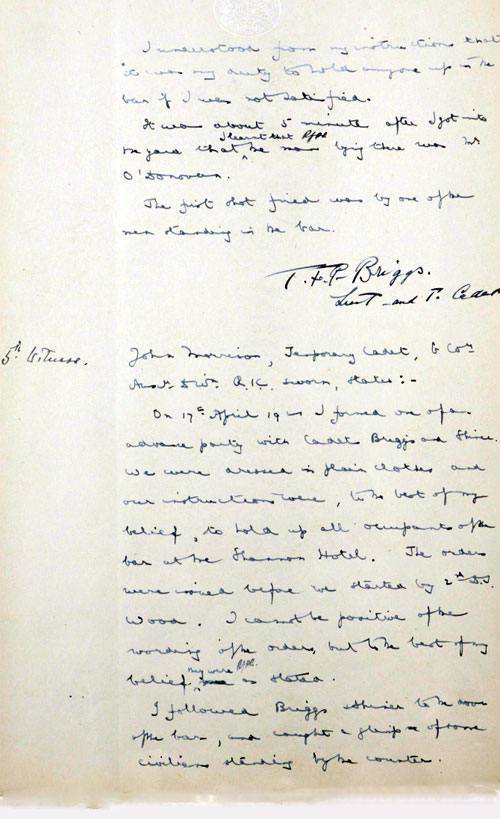 I understood from my instructions that
it was my duty to hold anyone up in the
bar if I was not satisfied.
It was about 5 minutes after I got into
I learnt that
the yard that the man lying there was Mr
O'Donovan.
The first shot fired was by one of the
men standing in the bar.
T. F. P. Briggs.
Lieut and T. Cadet
5th Witness.
John Morrison, Temporary Cadet, G Coy
Aux. Div. R.I.C. sworn, states:-
On 17th April 1921 I formed one of an
advance party with Cadets Briggs and
We were dressed in plain clothes and
our instructions were, to the best of my
belief, to hold up all occupants of the
bar at the Shannon Hotel. The orders
were issued before we started by 2nd D.I.
Wood. I cannot be positive of the
wording of the orders, but to the best of my
they were
belief, as stated.
I followed Briggs to the door
of the bar, and caught a glimpse of some
civilians standing by the counter.